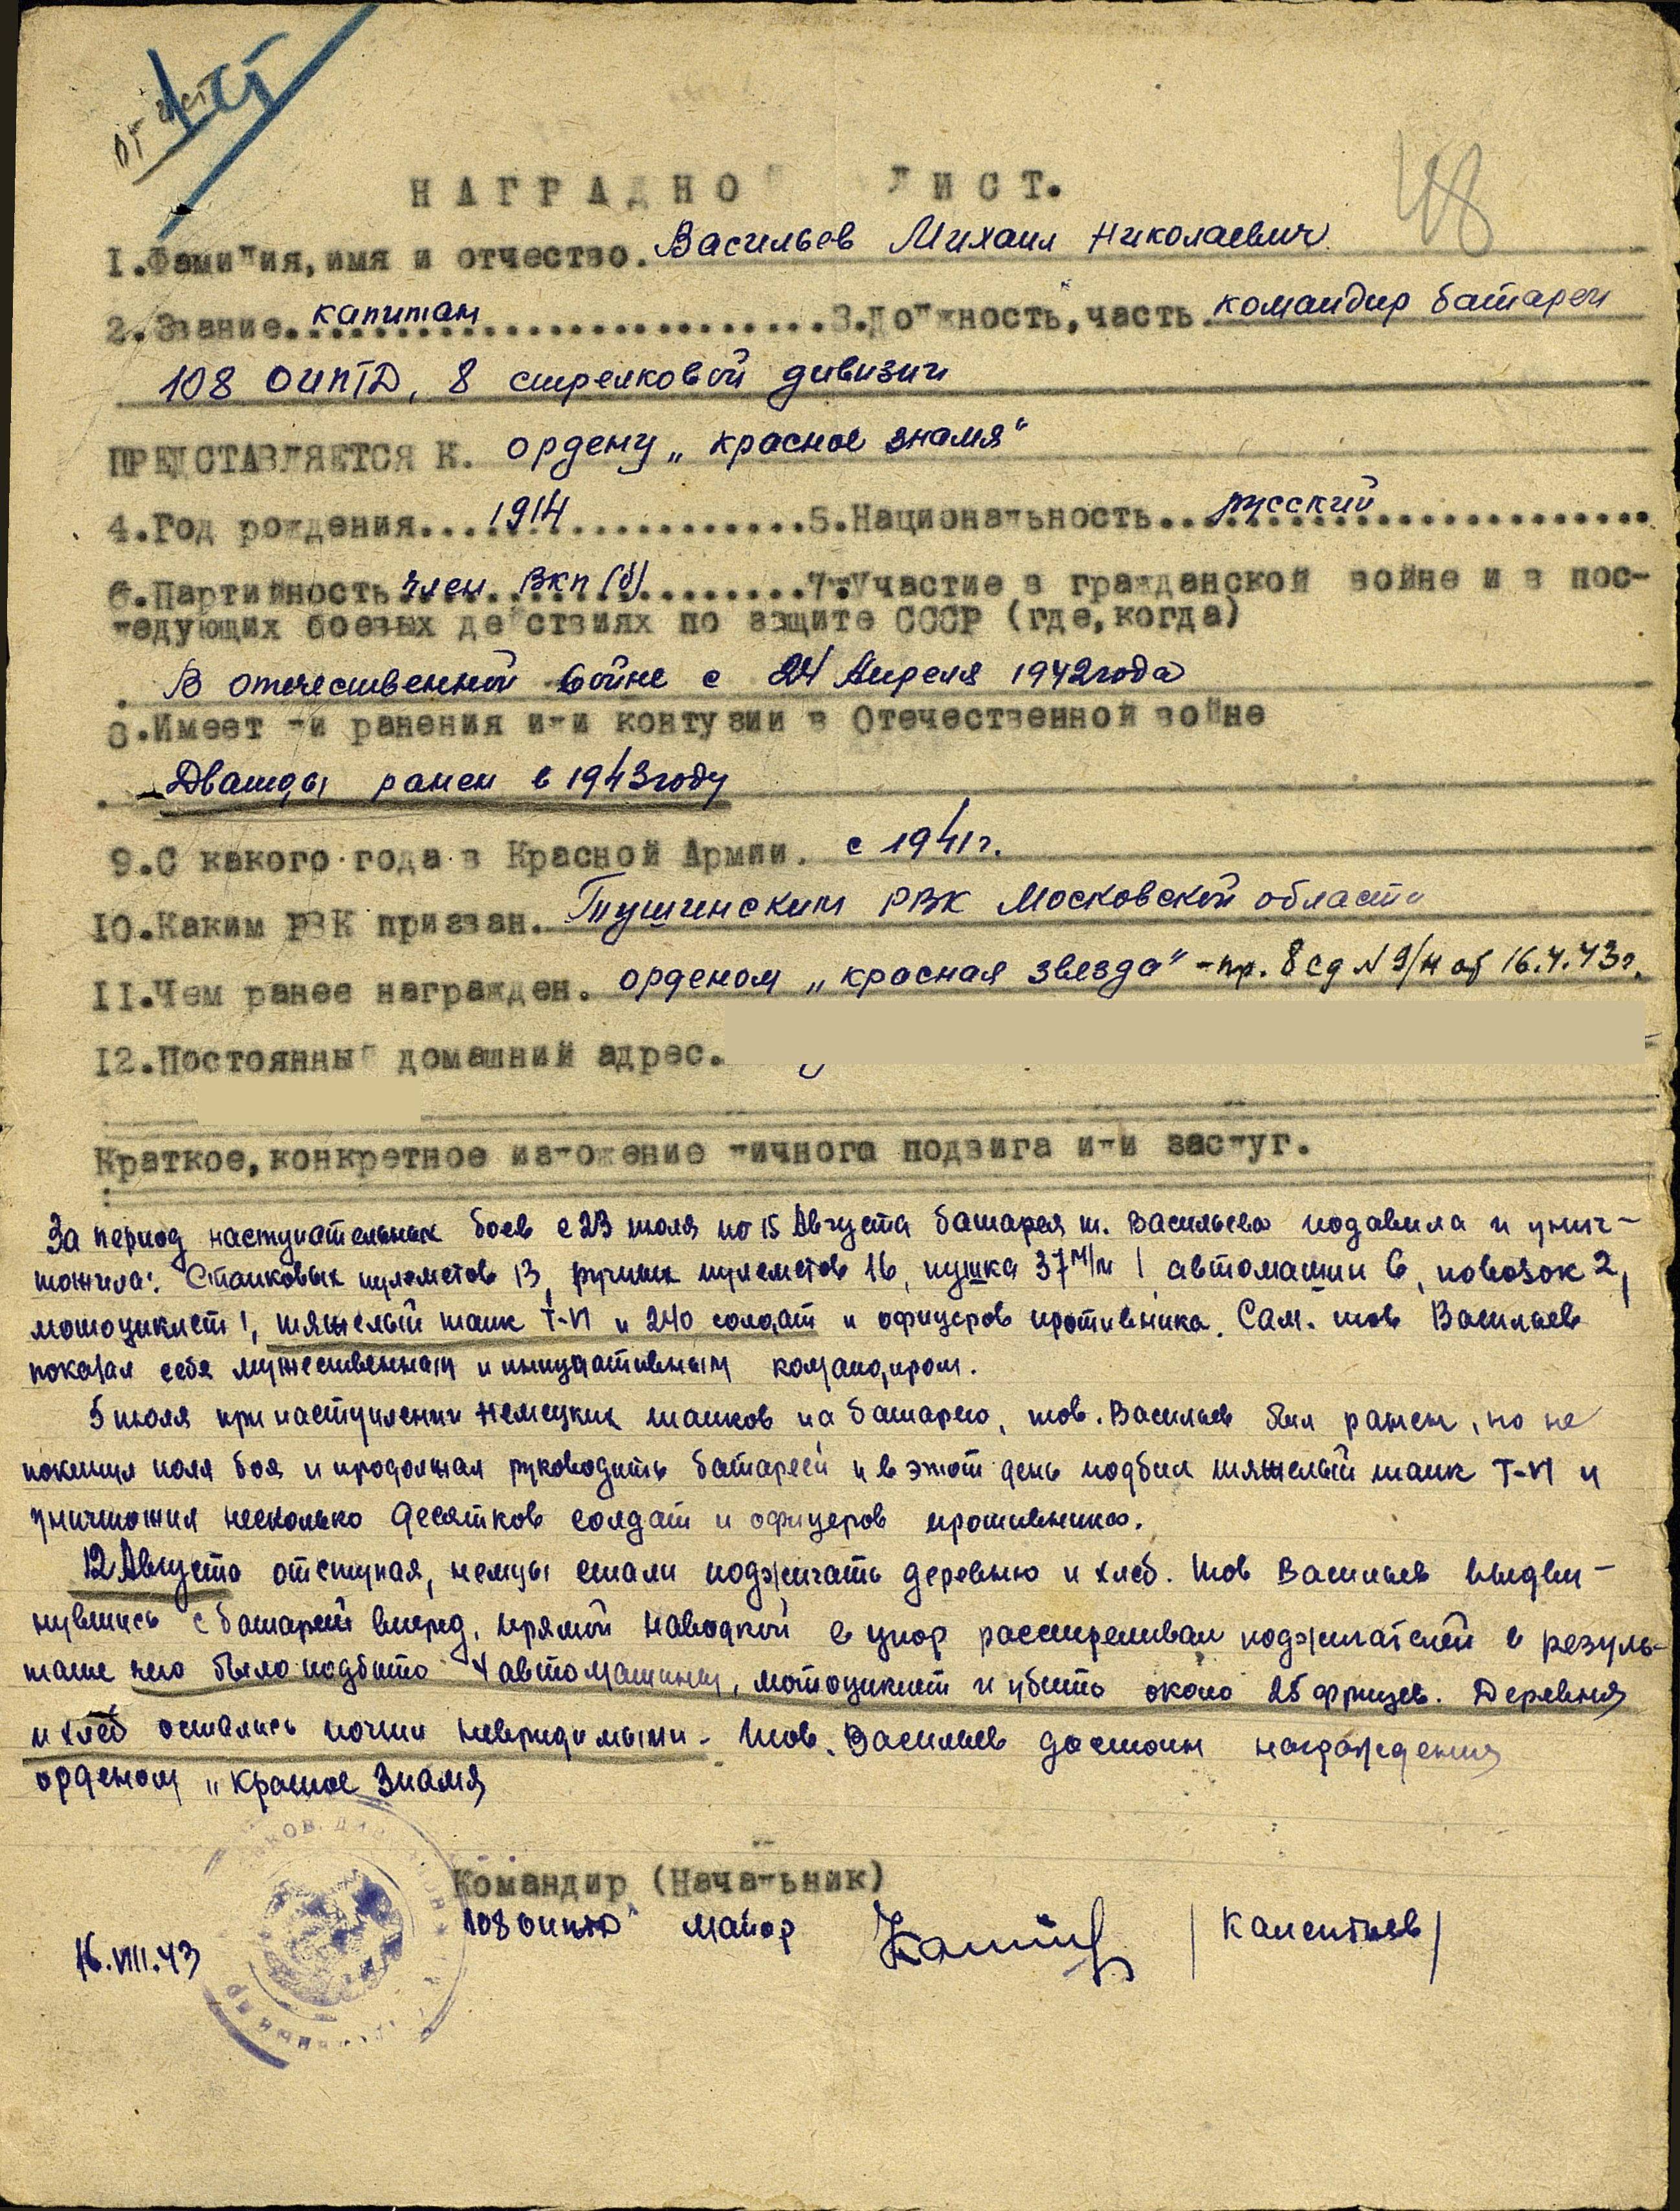 НАГРАДНОЙ ЛИСТ.
48
1.Фамилия,имя и отчество. Васильев Михаил Николаевич
2.Звание. капитан 3.Должность,часть командир батареи
108 ОИПТД, 8 стрелковой дивизии
ПРЕДСТАВЛЯЕТСЯ К. ордену „красное знамя“
4.Год рождения 1914 5.Национальность русский
6.Партийность член ВКП(б) 7.Участие в гражданской войне и в пос-
ледующих боевых действиях по защите СССР (где,когда)
В отечественной войне с 24 Апреля 1942 года
8.Имеет ли ранения или контузии в Отечественной войне
Дважды ранен в 1943 году
9.С какого года в Красной Армии. с 1941 г.
10.Каким РВК призван. Тушинским РВК Московской области
11.Чем ранее награжден. орденом „красная звезда“ - пр. 8 сд N 9/н от 16.4.43 г.
12.Постоянный домашний адрес.
Краткое,конкретное изложение личного подвига или заслуг.
За период наступательных боев с 23 июля по 15 Августа батарея т. Васильева подавила и унич-
тожила: Станковых пулеметов 13, ручных пулеметов 16, пушка 37 м/м 1 автомашин 6, повозок 2,
мотоциклет 1, тяжелый танк Т-VI и 240 солдат и офицеров противника. Сам. тов Васильев
показал себя мужественным и инициативным командиром.
5 июля при наступлении немецких танков на батарею, тов. Васильев был ранен, но не
покинул поля боя и продолжал руководить батареей и в этот день подбил тяжелый танк Т-VI и
уничтожил несколько десятков солдат и офицеров противника.
12 Августа отступая, немцы стали поджигать деревню и хлеб. Тов Васильев выдви-
нувшись с батареей вперед, прямой наводкой в упор расстреливал поджигателей в резуль-
тате чего было подбито 4 автомашины, мотоциклет и убито около 25 фрицев. Деревня
и хлеб остались почти невредимыми. Тов. Васильев достоин награждения
орденом „Красное Знамя
Командир (Начальник)
108 оиптд майор
16.VIII.43